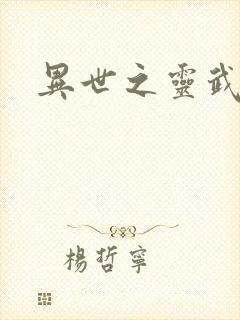 異世之靈武
楊哲寧